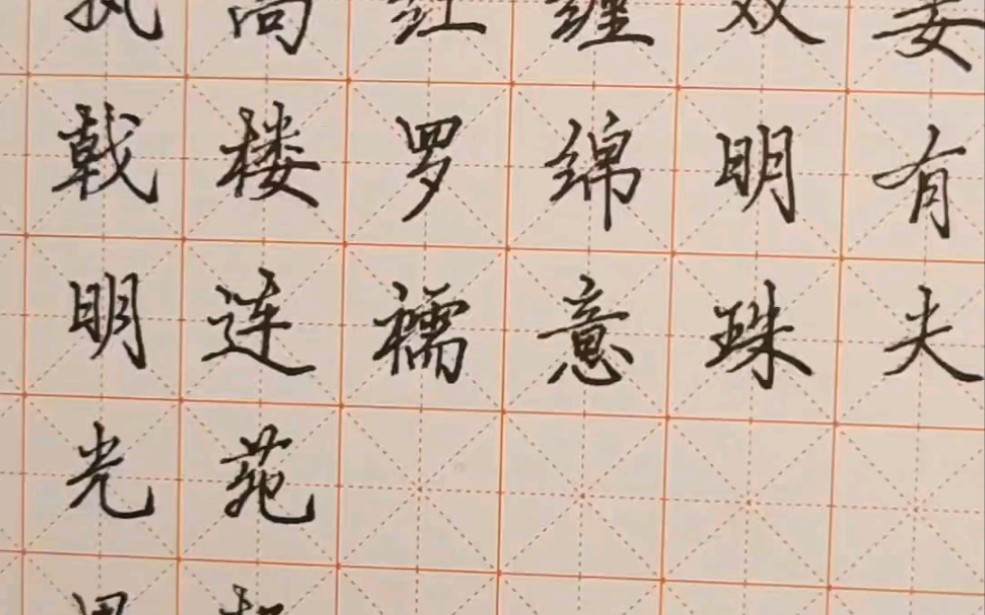 妾有夫
双明珠
缠绵意
红罗襦
高楼连苑
执戟明光